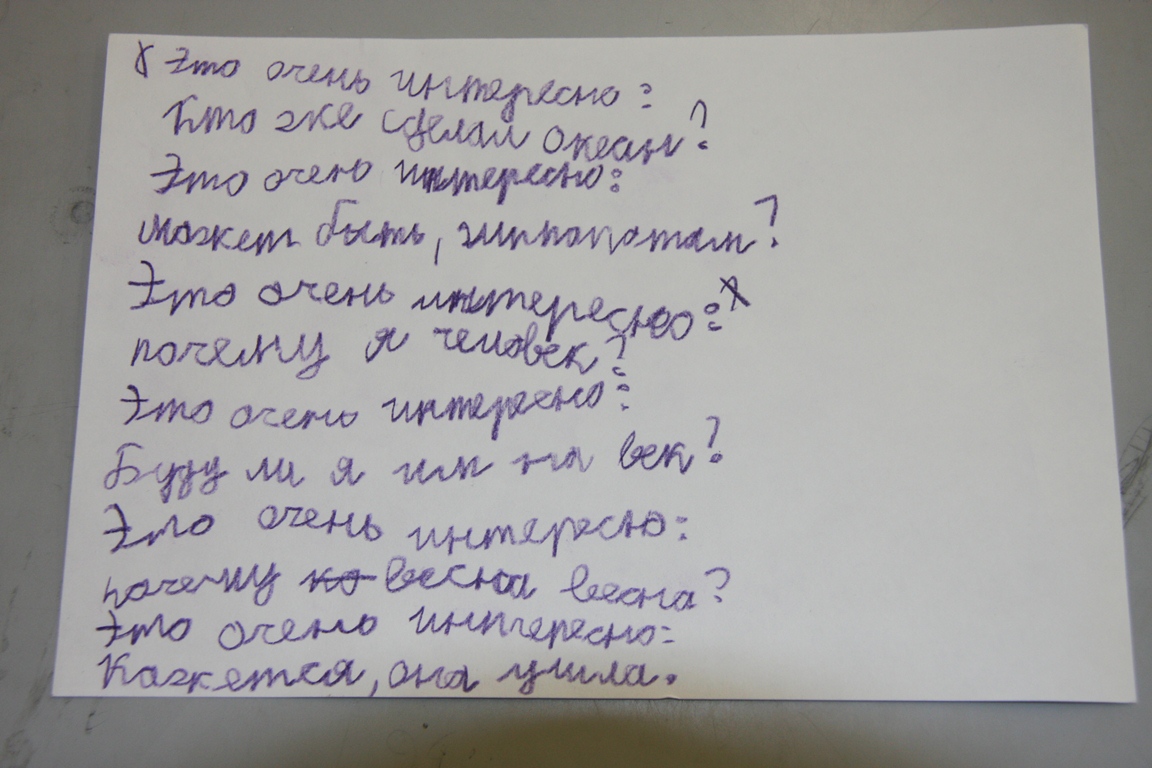 Это очень интересно:
Кто же сделал океан?
Это очень интересно:
может быть, гиппопотам?
Это очень интересно:
почему я человек?
Это очень интересно:
Буду ли я им на век?
Это очень интересно:
почему ко весна весна?
Это очень интересно:
Кажется, она ушла.